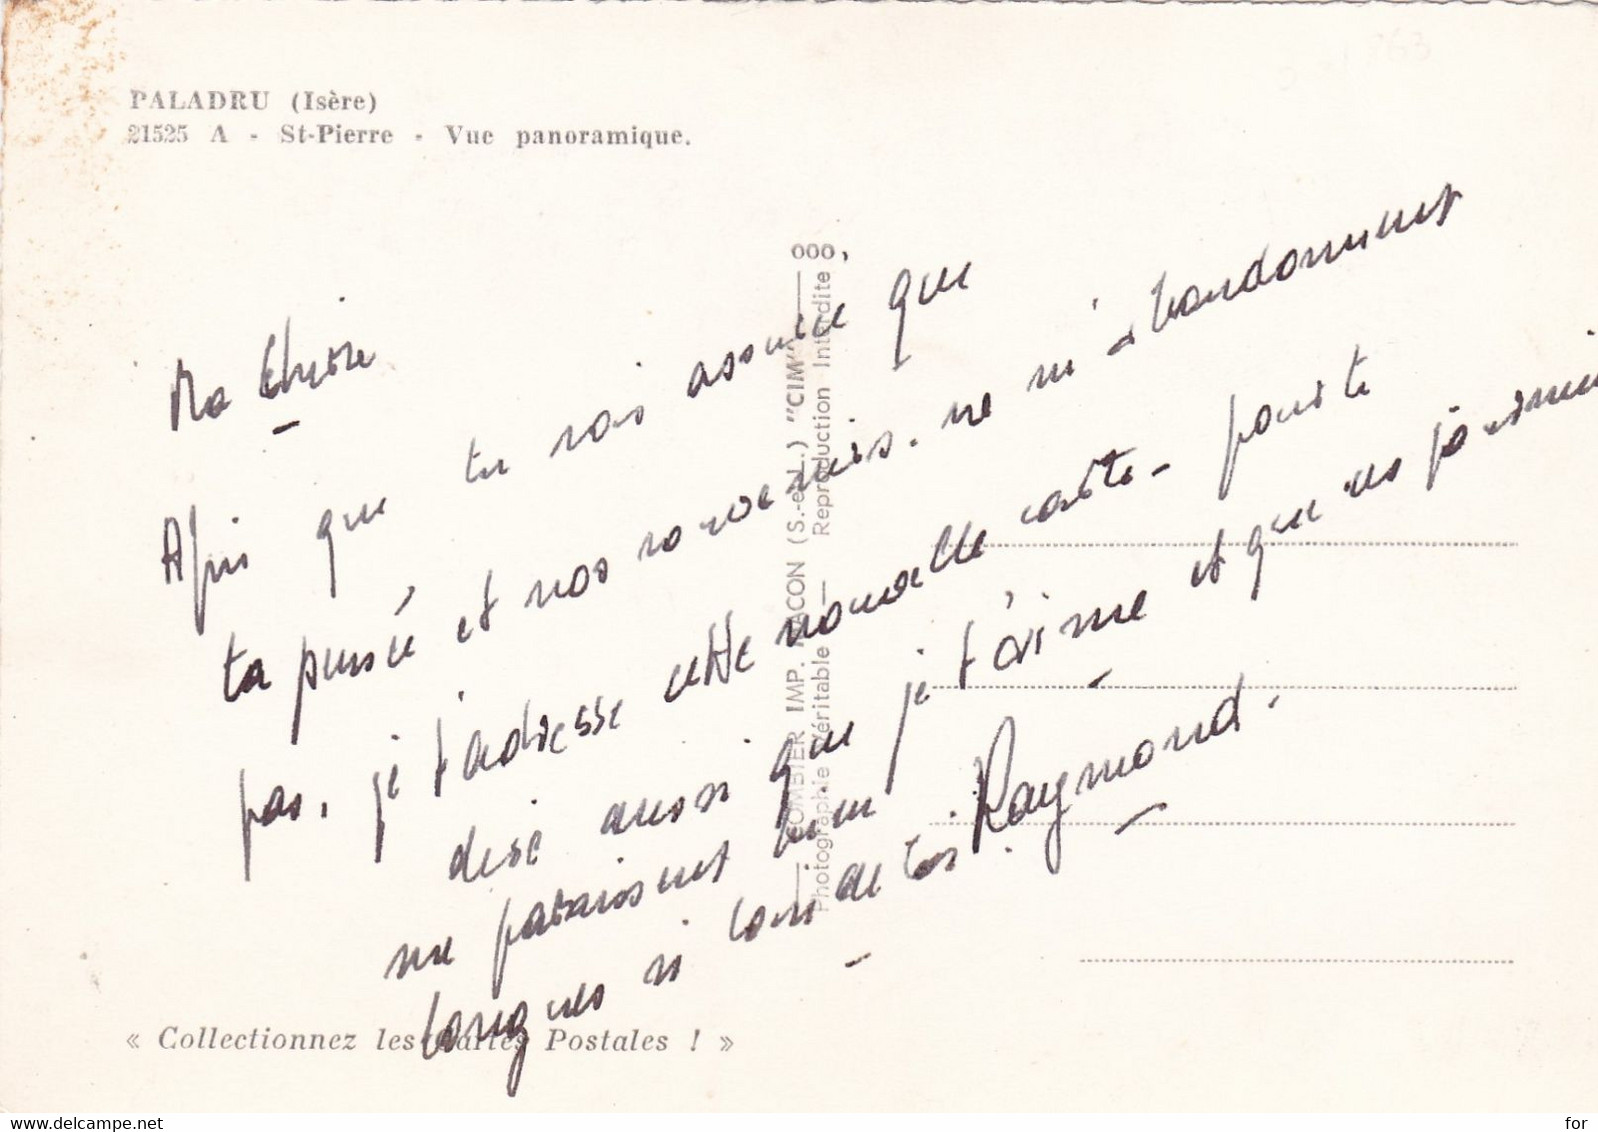 PALADRU (Isère)
21525 A - St-Pierre - Vue panoramique.
Ma Chérie
Afin que tu sois assurée que
ta pensée et nos souvenirs. ne m'abandonnent
pas, je t'adresse cette nouvelle carte - pour te
dire aussi que je t'aime et que les journées
me paraissent bien
longues si loin de toi.
Raymond.
COMBIER IMP. MACON (S.-et-L.) "CIM"
Photographie Véritable — Reproduction Interdite
« Collectionnez les Cartes Postales ! »
www.delcampe.net
for